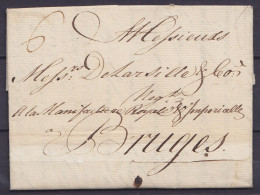 6
A Messieurs
Messrs De Larville & Co:
Negts
a la Manufacture Royale & Imperialle
à Bruges.